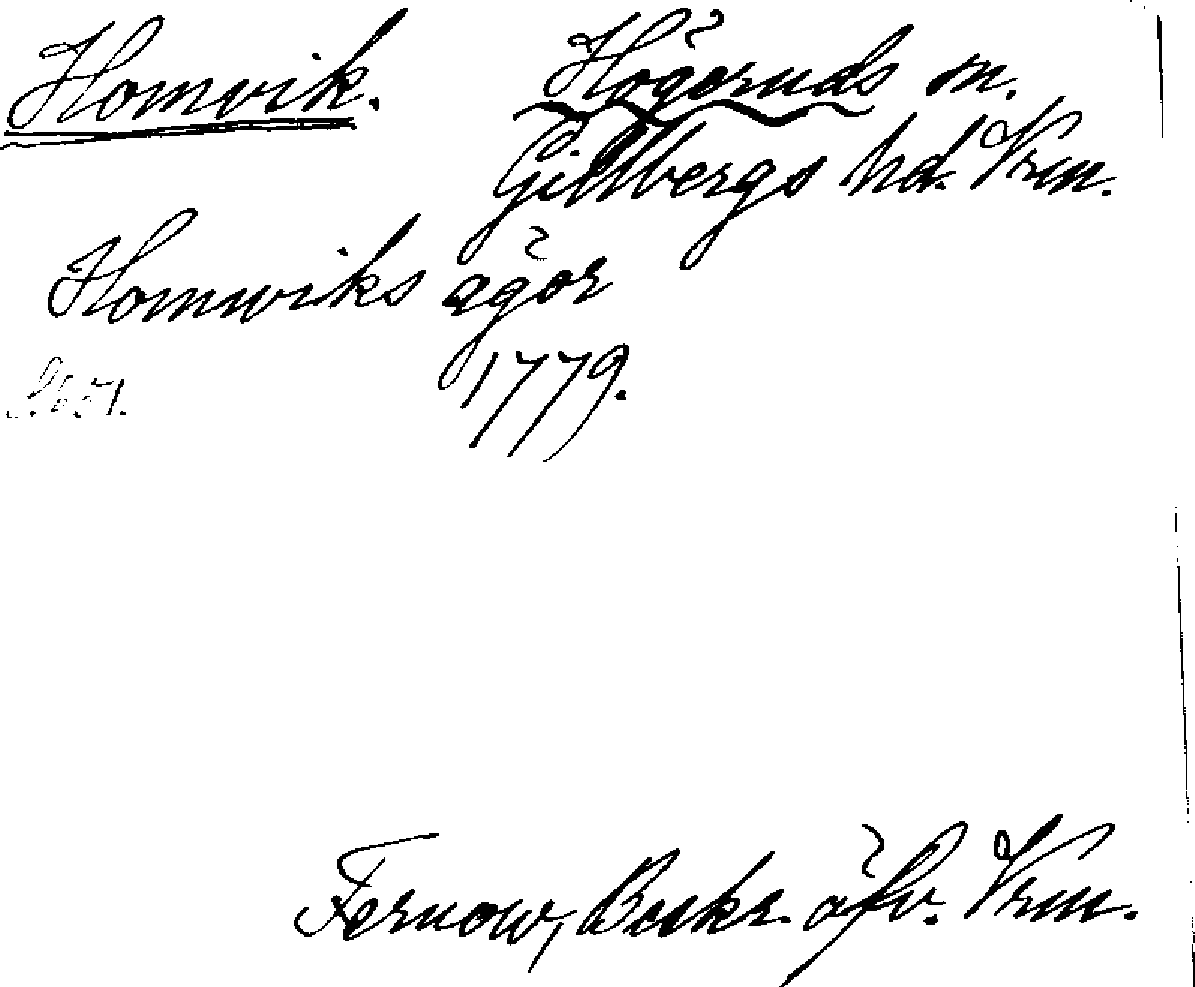 Homvik. Högeruds sn.
Gillbergs hd. Vrm.
Homwiks ägor
1779.
S. 651.
Fernow, Beskr. öfv. Vrm.